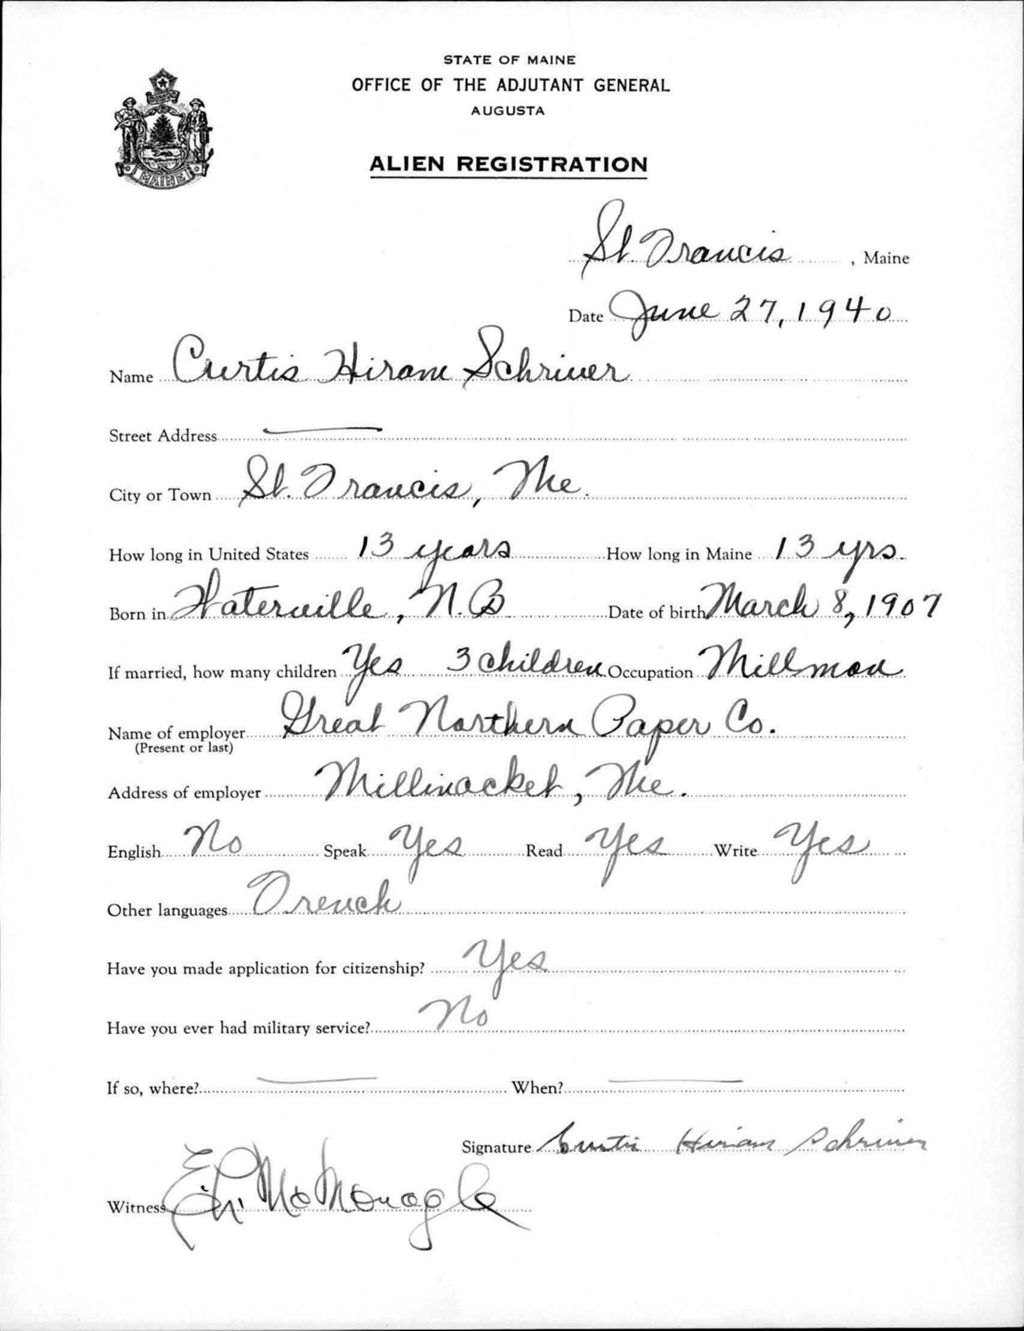 STATE OF MAINE
OFFICE OF THE ADJUTANT GENERAL
AUGUSTA
MAINE
ALIEN REGISTRATION
St. Francis, Maine
Date June 27, 1940
Name Curtis Hiram Schriver
Street Address
City or Town St. Francis, Me.
How long in United States 13 years How long in Maine 13 yrs.
Born in Waterville, N.B Date of birth March 8, 1907
If married, how many children Yes 3 children Occupation Millman
Name of employer Great Northern Paper Co.
(Present or last)
Address of employer Millinocket, Me.
English No Speak Yes Read Yes Write Yes
Other languages French
Have you made application for citizenship? Yes
Have you ever had military service? No
If so, where? When?
Signature Curtis Hiram Schriver
Witness McMonagle